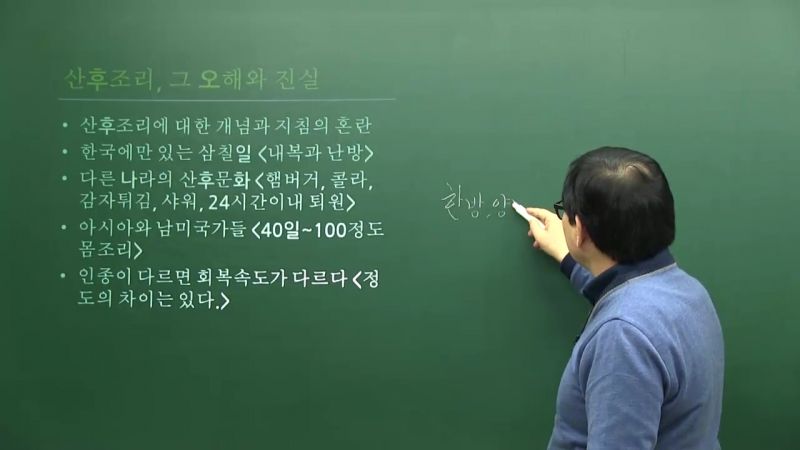 산후조리, 그 오해와 진실
• 산후조리에 대한 개념과 지침의 혼란
• 한국에만 있는 삼칠일 <내복과 난방>
• 다른 나라의 산후문화 <햄버거, 콜라,
감자튀김, 샤워, 24시간이내 퇴원>
• 아시아와 남미국가들 <40일~100정도
몸조리>
• 인종이 다르면 회복속도가 다르다 <정
도의 차이는 있다.>
한방, 양